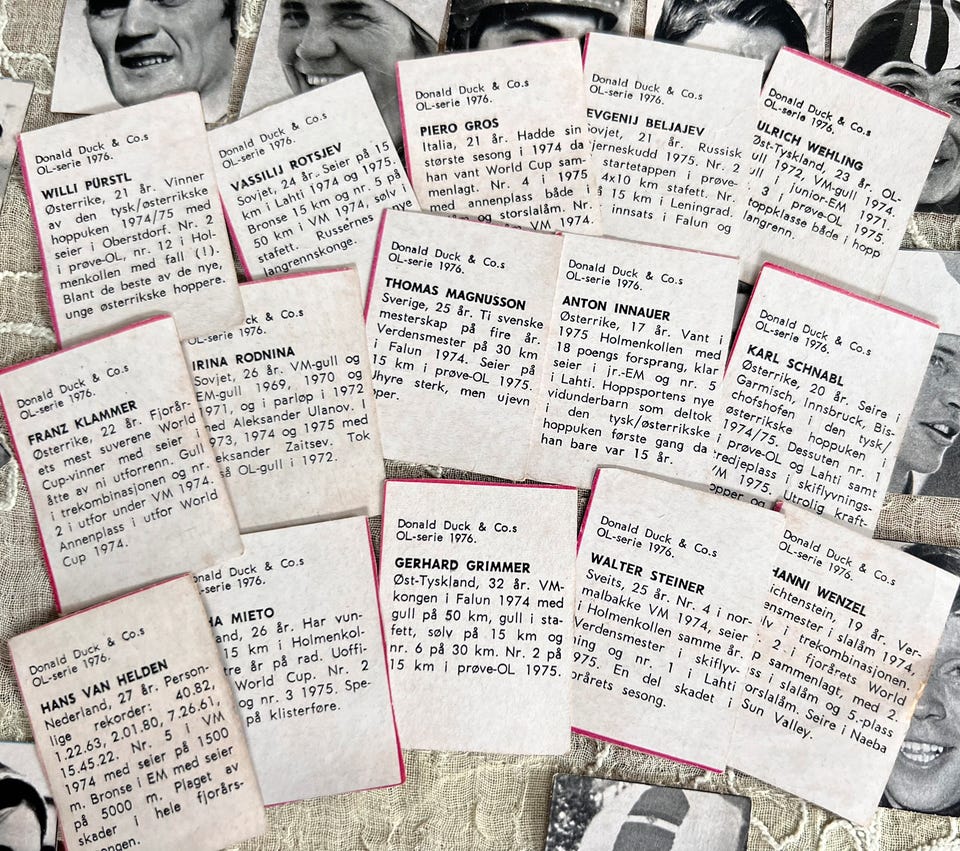 Donald Duck & Co.s
OL-serie 1976.
WILLI PÜRSTL
Østerrike, 21 år. Vinner
av den tysk/østerrikske
hoppuken 1974/75 med
seier i Oberstdorf. Nr. 2
i prøve-OL, nr. 12 i Hol-
menkollen med fall (!).
Blant de beste av de nye,
unge østerrikske hoppere.
Donald Duck & Co.s
OL-serie 1976.
VASSILIJ ROTSJEV
Sovjet, 24 år. Seier på 15
km i Lahti 1974 og 1975.
Bronse 15 km og nr. 5 på
50 km i VM 1974, sølv i
stafett. Russernes nye
langrennskonge.
Donald Duck & Co.s
OL-serie 1976.
PIERO GROS
Italia, 21 år. Hadde sin
største sesong i 1974 da
han vant World Cup sam-
menlagt. Nr. 4 i 1975
med annenplass både i
og storslalåm. Nr.
VM 1974.
Donald Duck & Co.s
OL-serie 1976.
EVGENIJ BELJAJEV
Sovjet, 21 år. Russisk
jerneskudd 1975. Nr. 2
i startetappen i prøve-
4x10 km stafett. Nr.
å 15 km i Leningrad.
innsats i Falun og
Donald Duck & Co.s
OL-serie 1976.
ULRICH WEHLING
Øst-Tyskland, 23 år. OL-
gull 1972, VM-gull 1974,
gull i junior-EM 1971.
3 i prøve-OL 1975.
toppklasse både i hopp
langrenn.
Donald Duck & Co.s
OL-serie 1976.
THOMAS MAGNUSSON
Sverige, 25 år. Ti svenske
mesterskap på fire år.
Verdensmester på 30 km
i Falun 1974. Seier på
15 km i prøve-OL 1975.
Uhyre sterk, men ujevn
per.
Donald Duck & Co.s
OL-serie 1976.
ANTON INNAUER
Østerrike, 17 år. Vant i
1975 Holmenkollen med
18 poengs forsprang, klar
seier i jr.-EM og nr. 5
i Lahti. Hoppsportens nye
vidunderbarn som deltok
i den tysk/østerrikske
hoppuken første gang da
han bare var 15 år.
Donald Duck & Co.s
OL-serie 1976.
KARL SCHNABL
Østerrike, 20 år. Seire i
Garmisch, Innsbruck, Bis-
chofshofen i den tysk/
østerrikske hoppuken i
1974/75. Dessuten nr. 1
i prøve-OL og Lahti samt
tredjeplass i skiflyvnings-
VM 1975. Utrolig kraft-
opper og
Donald Duck & Co.s
OL-serie 1976.
FRANZ KLAMMER
Østerrike, 22 år. Fjorår-
ets mest suverene World
Cup-vinner med seier i
åtte av ni utforrenn. Gull
i trekombinasjonen og nr.
2 i utfor under VM 1974.
Annenplass i utfor World
Cup 1974.
uck & Co.s
OL-serie 1976.
IRINA RODNINA
Sovjet, 26 år. VM-gull og
EM-gull 1969, 1970 og
1971, og i parløp i 1972
med Aleksander Ulanov. I
1973, 1974 og 1975 med
eksander Zaitsev. Tok
så OL-gull i 1972.
Donald Duck & Co.s
OL-serie 1976.
HANS VAN HELDEN
Nederland, 27 år. Person-
lige rekorder: 40.82,
1.22.63, 2.01.80, 7.26.61,
15.45.22. Nr. 5 i VM
1974 med seier på 1500
m. Bronse i EM med seier
på 5000 m. Plaget av
skader i hele fjorårs-
ongen.
onald Duck & Co.s
-serie 1976.
HA MIETO
and, 26 år. Har vun-
15 km i Holmenkol-
tre år på rad. Uoffi-
World Cup. Nr. 2
og nr. 3 1975. Spe-
på klisterføre.
Donald Duck & Co.s
OL-serie 1976.
GERHARD GRIMMER
Øst-Tyskland, 32 år. VM-
kongen i Falun 1974 med
gull på 50 km, gull i sta-
fett, sølv på 15 km og
nr. 6 på 30 km. Nr. 2 på
15 km i prøve-OL 1975.
Donald Duck & Co.s
OL-serie 1976.
WALTER STEINER
Sveits, 25 år. Nr. 4 i nor-
malbakke VM 1974, seier
i Holmenkollen samme år.
Verdensmester i skiflyv-
ning og nr. 1 i Lahti
1975. En del skadet i
fjorårets sesong.
Donald Duck & Co.s
OL-serie 1976.
HANNI WENZEL
ichtenstein, 19 år. Ver-
ensmester i slalåm 1974,
lv i trekombinasjonen.
2 i fjorårets World
p sammenlagt, med 2.
s i slalåm og 5.-plass
orslalåm. Seire i Naeba
Sun Valley.